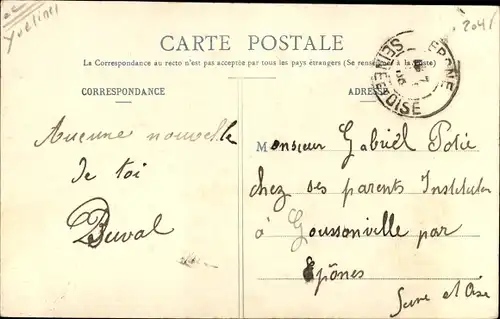 Yvelines
2041
CARTE POSTALE
La Correspondance au recto n'est pas acceptée par tous les pays étrangers (Se renseigner à la poste)
CORRESPONDANCE
ADRESSE
EPONE
SEINE-&-OISE
Aucune nouvelle
de toi
Duval
Monsieur Gabriel
chez ses parents Instituteur
à Goussonville par
Epônes
Seine et Oise